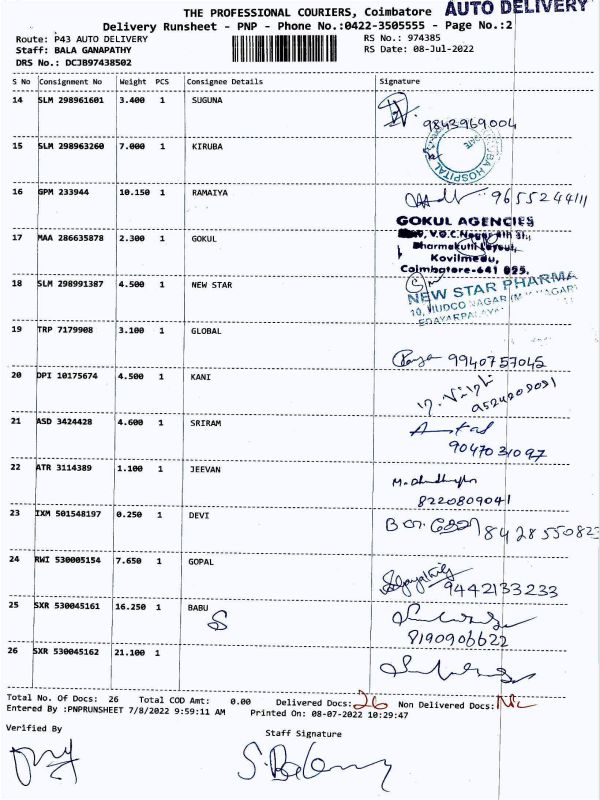 THE PROFESSIONAL COURIERS, Coimbatore AUTO DELIVERY
Delivery Runsheet - PNP - Phone No.:0422-3505555 - Page No.:2
Route: P43 AUTO DELIVERY RS No.: 974385
Staff: BALA GANAPATHY RS Date: 08-Jul-2022
DRS No.: DCJB97438502
S No Consignment No Weight PCS Consignee Details Signature
14 SLM 298961601 3.400 1 SUGUNA
9843969004
15 SLM 298963260 7.000 1 KIRUBA
HOSPITAL
16 GPM 233944 10.150 1 RAMAIYA
9655244111
GOKUL AGENCIES
17 MAA 286635878 2.300 1 GOKUL
V.O.C.Nagar 4th St,
Dharmakutti Layout,
Kovilmedu,
Coimbatore-641 025.
18 SLM 298991387 4.500 1 NEW STAR
NEW STAR PHARMA
10, HUDCO NAGAR
EDAYARPALAYA
19 TRP 7179908 3.100 1 GLOBAL
9940757045
20 DPI 10175674 4.500 1 KANI
21 ASD 3424428 4.600 1 SRIRAM
9047031097
22 ATR 3114389 1.100 1 JEEVAN
8220809041
23 IXM 501548197 0.250 1 DEVI
8428550823
24 RWI 530005154 7.650 1 GOPAL
9442133233
25 SXR 530045161 16.250 1 BABU
S
8190906622
26 SXR 530045162 21.100 1
Total No. Of Docs: 26 Total COD Amt: 0.00 Delivered Docs: 26 Non Delivered Docs: NIL
Entered By :PNPRUNSHEET 7/8/2022 9:59:11 AM Printed On: 08-07-2022 10:29:47
Verified By
Staff Signature